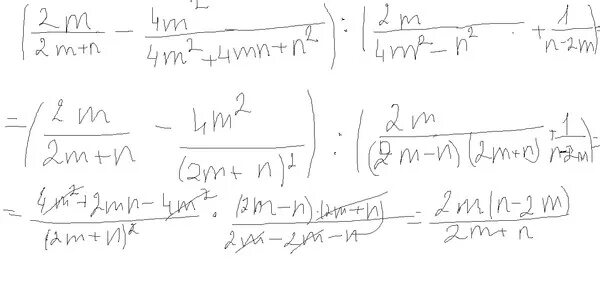 (2m/(2m+n) - 4m²/(4m²+4mn+n²)) : (2m/(4m²-n²) + 1/(n-2m)) =
= (2m/(2m+n) - 4m²/(2m+n)²) : (2m/((2m-n)(2m+n)) + 1/(n-2m)) =
= (4m²+2mn-4m²)/(2m+n)² · ((2m-n)·(2m+n))/(2m-2m-n) = 2m(n-2m)/(2m+n)